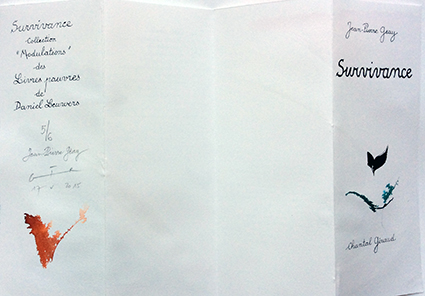 Survivance
Collection
"Modulations"
des
Livres pauvres
de
Daniel Leuwers
5/6
Jean-Pierre Géay
Jean-Pierre Géay
Survivance
Chantal Giraud